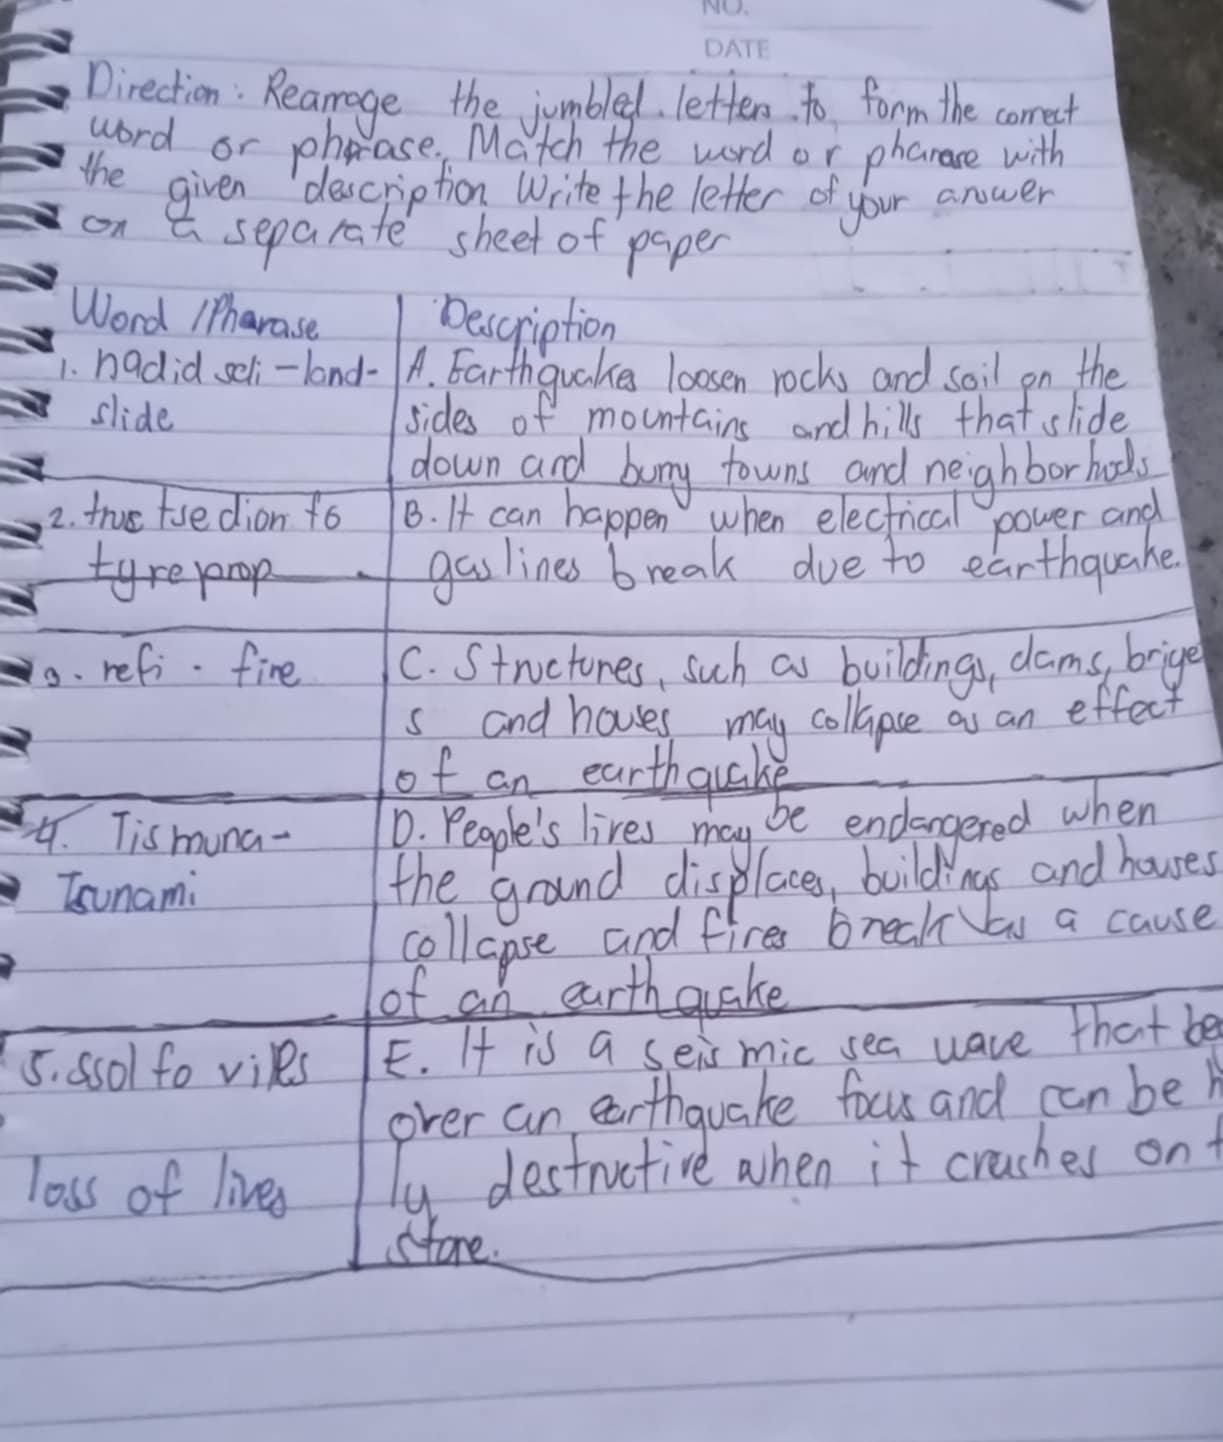 NO.
DATE
Direction: Rearroge the jumbled letters to form the correct
word or phrase. Match the word or pharase with
the given description. Write the letter of your answer
on a separate sheet of paper
Word /Pharase
Description
1. nadid scli - land-
slide
A. Earthquakes loosen rocks and soil on the
sides of mountains and hills that slide
down and burry towns and neighborhods
2. truc tsedion fo
tyreprop
B. It can happen when electrical power and
gas lines break due to earthquake.
3. refi - fire
C. Structures, such as buildings, dams, brige
s and houses may collapse as an effect
of an earthquake
4. Tismuna-
Tsunami
D. People's lives may be endangered when
the ground displaces, buildings and houses
collapse and fires break as a cause
of an earthquake
5. ssol fo viles
loss of lives
E. It is a seismic sea wave that be
over an earthquake focus and can be h
ly destructive when it crashes on t
store.